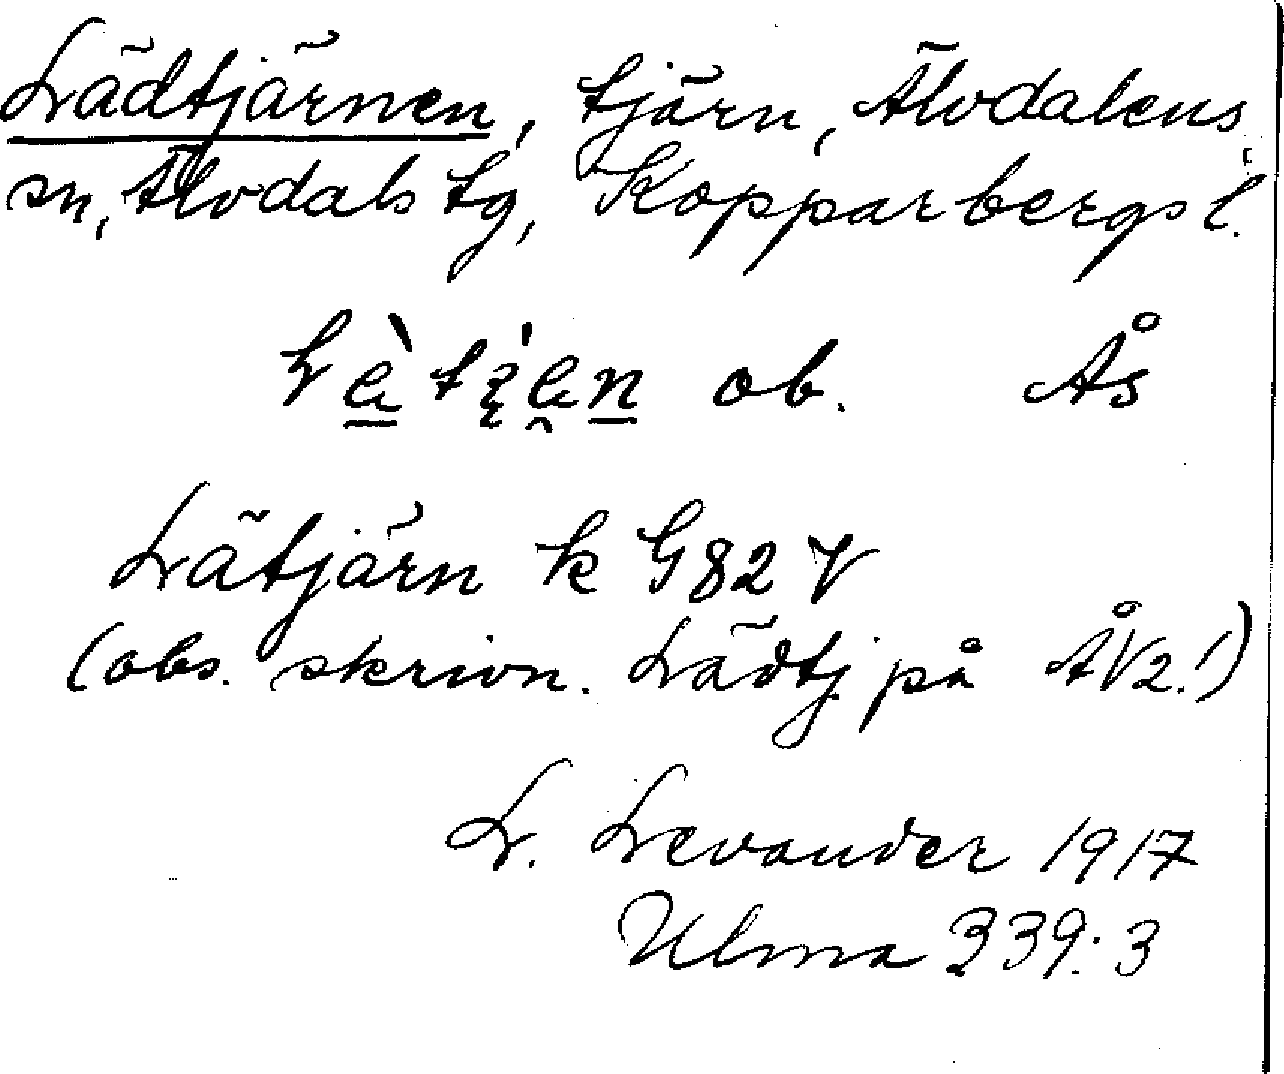 Lädtjärnen, tjärn, Älvdalens
sn, Älvdals tg, Kopparbergs l.
ob. Ås
Lätjärn k G82 V
(obs. skrivn. Lädtj. på ÅV2!)
L. Levander 1917
Ulma 339:3